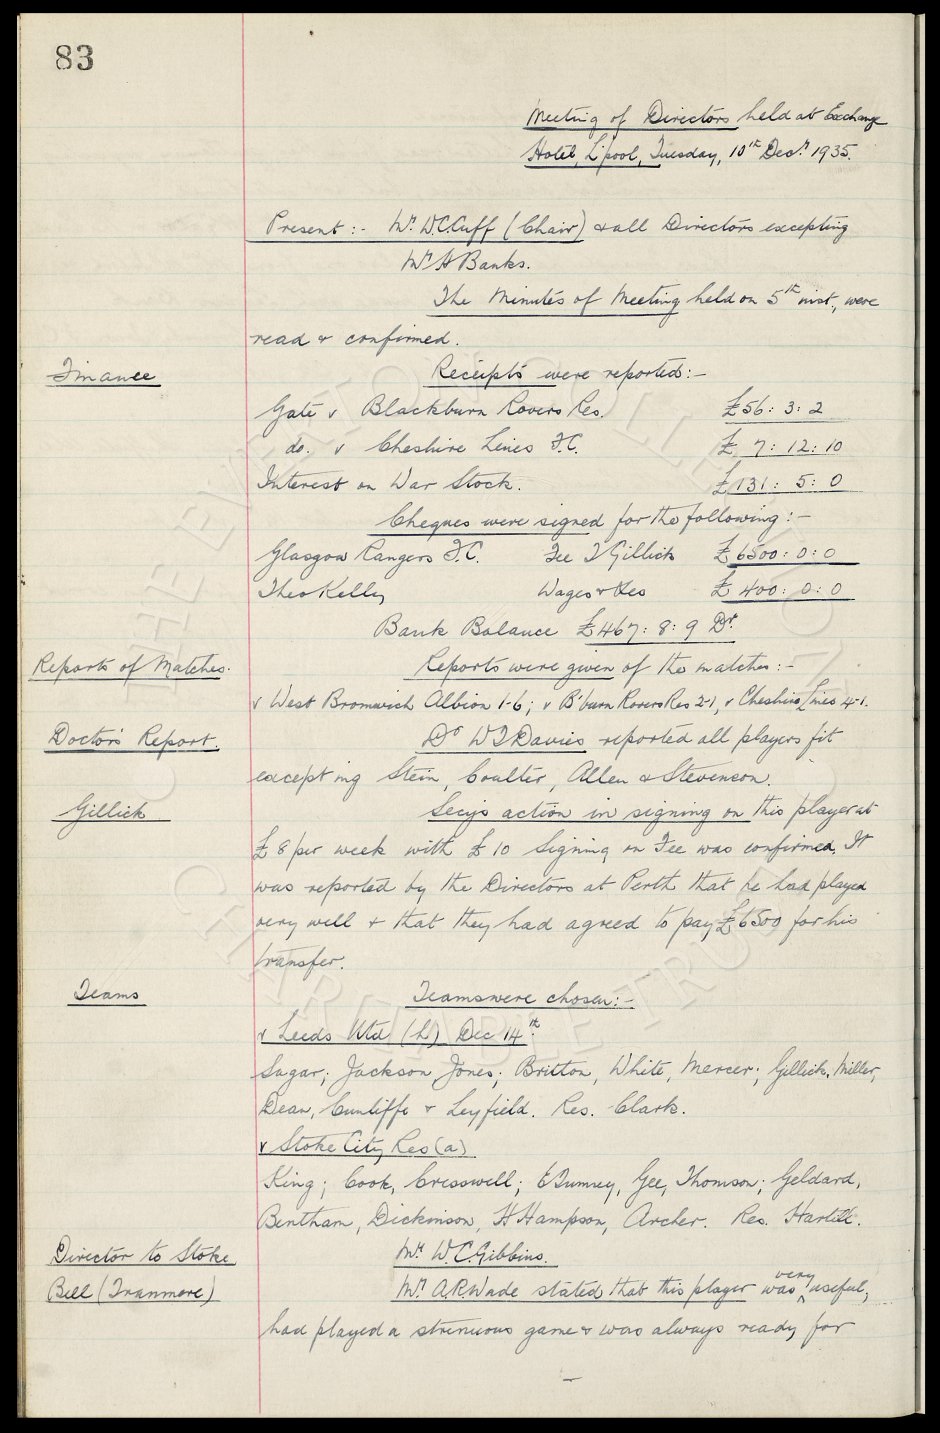 83
Meeting of Directors held at Exchange
Hotel, L'pool, Tuesday, 10th Decr. 1935.
Present :- Mr. W.C. Cuff (Chair) & all Directors excepting
Mr A Banks.
The Minutes of Meeting held on 5th inst., were
read & confirmed.
Finance
Receipts were reported:-
Gate v Blackburn Rovers Res. £56: 3: 2
do. v Cheshire Lines F.C. £ 7: 12: 10
Interest on War Stock. £131: 5: 0
Cheques were signed for the following :-
Glasgow Rangers F.C. Fee T Gillick £6500: 0: 0
Theo Kelly Wages & Xes £ 400: 0: 0
Bank Balance £467: 8: 9 Dr.
Reports of Matches.
Reports were given of the matches :-
v West Bromwich Albion 1-6; v B'burn Rovers Res 2-1, v Cheshire Lines 4-1.
Doctor's Report.
Dr W T Davies reported all players fit
excepting Stein, Coulter, Allen & Stevenson.
Gillick
Secy's action in signing on this player at
£8 per week with £10 Signing on Fee was confirmed. It
was reported by the Directors at Perth that he had played
very well & that they had agreed to pay £6500 for his
transfer.
Teams
Teams were chosen:-
v Leeds Utd (h) Dec 14th.
Sagar; Jackson Jones; Britton, White, Mercer; Gillick, Miller,
Dean, Cunliffe & Leyfield. Res. Clark.
v Stoke City Res (a)
King; Cook, Cresswell; Bumsey, Gee, Thomson; Geldard,
Bentham, Dickinson, H Hampson, Archer. Res. Hartill.
Director to Stoke
Mr. W.C. Gibbins.
Bell (Tranmere)
Mr. A.R. Wade stated that this player was very useful,
had played a strenuous game & was always ready for
THE EVERTON COLLECTION
CHARITABLE TRUST